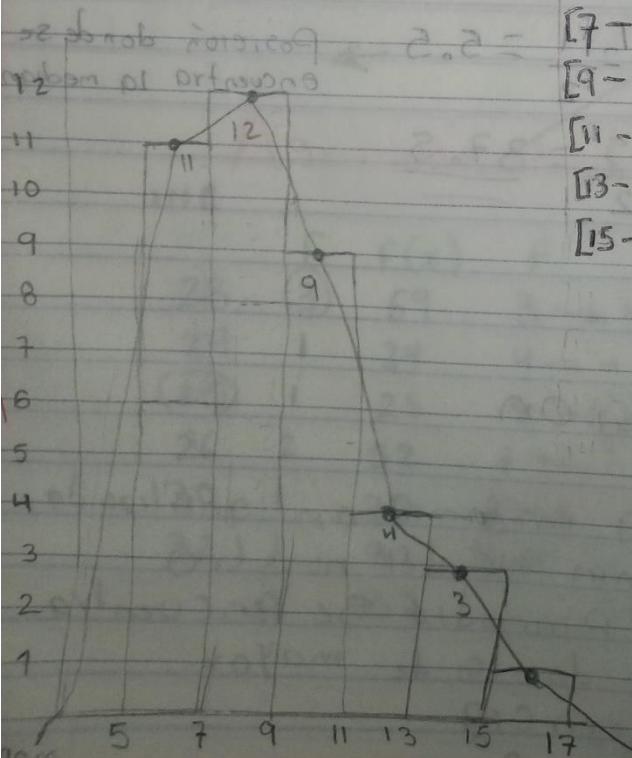 [7-
[9-
[11-
[13-
[15-
12
11
10
9
8
7
6
5
4
3
2
1
11
12
9
4
3
5 7 9 11 13 15 17